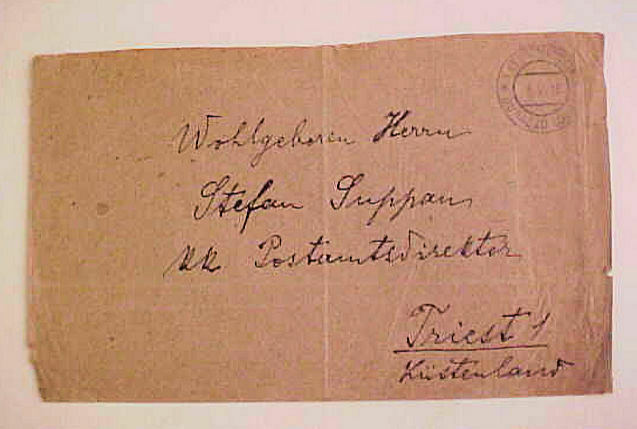 Wohlgeboren Herrn
Stefan Suppan
kk Postamtsdirektor
Triest 1
Küstenland